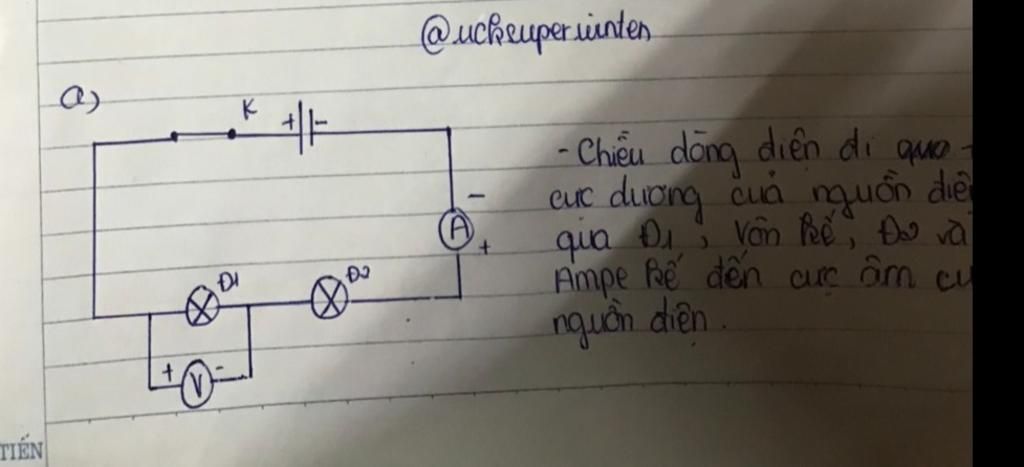 @uckeuperwinten
a)
K
+ -
- Chiều dòng điện đi qua
-
cực dương của nguồn điệ
A
+
qua Đ1, Vôn kế, Đ2 và
Đ1
Đ2
Ampe kế đến cực âm củ
nguồn điện.
+ V -
TIẾN